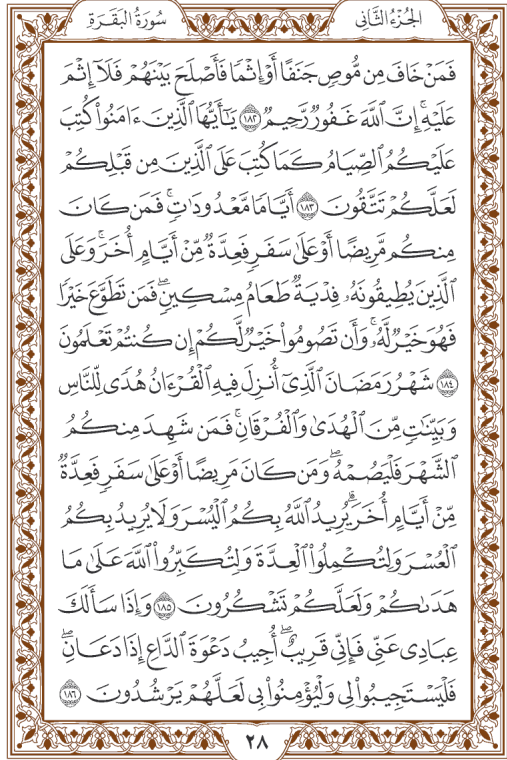 الجُزْءُ الثَّانِي
سُورَةُ البَقَرَةِ
فَمَنْ خَافَ مِن مُّوصٍ جَنَفًا أَوْ إِثْمًا فَأَصْلَحَ بَيْنَهُمْ فَلَآ إِثْمَ
عَلَيْهِ ۚ إِنَّ ٱللَّهَ غَفُورٌ رَّحِيمٌ ١٨٢ يَـٰٓأَيُّهَا ٱلَّذِينَ ءَامَنُوا۟ كُتِبَ
عَلَيْكُمُ ٱلصِّيَامُ كَمَا كُتِبَ عَلَى ٱلَّذِينَ مِن قَبْلِكُمْ
لَعَلَّكُمْ تَتَّقُونَ ١٨٣ أَيَّامًا مَّعْدُودَٰتٍ ۚ فَمَن كَانَ
مِنكُم مَّرِيضًا أَوْ عَلَىٰ سَفَرٍ فَعِدَّةٌ مِّنْ أَيَّامٍ أُخَرَ ۚ وَعَلَى
ٱلَّذِينَ يُطِيقُونَهُۥ فِدْيَةٌ طَعَامُ مِسْكِينٍ ۖ فَمَن تَطَوَّعَ خَيْرًا
فَهُوَ خَيْرٌ لَّهُۥ ۚ وَأَن تَصُومُوا۟ خَيْرٌ لَّكُمْ ۖ إِن كُنتُمْ تَعْلَمُونَ
١٨٤ شَهْرُ رَمَضَانَ ٱلَّذِىٓ أُنزِلَ فِيهِ ٱلْقُرْءَانُ هُدًى لِّلنَّاسِ
وَبَيِّنَـٰتٍ مِّنَ ٱلْهُدَىٰ وَٱلْفُرْقَانِ ۚ فَمَن شَهِدَ مِنكُمُ
ٱلشَّهْرَ فَلْيَصُمْهُ ۖ وَمَن كَانَ مَرِيضًا أَوْ عَلَىٰ سَفَرٍ فَعِدَّةٌ
مِّنْ أَيَّامٍ أُخَرَ ۗ يُرِيدُ ٱللَّهُ بِكُمُ ٱلْيُسْرَ وَلَا يُرِيدُ بِكُمُ
ٱلْعُسْرَ وَلِتُكْمِلُوا۟ ٱلْعِدَّةَ وَلِتُكَبِّرُوا۟ ٱللَّهَ عَلَىٰ مَا
هَدَىٰكُمْ وَلَعَلَّكُمْ تَشْكُرُونَ ١٨٥ وَإِذَا سَأَلَكَ
عِبَادِى عَنِّى فَإِنِّى قَرِيبٌ ۖ أُجِيبُ دَعْوَةَ ٱلدَّاعِ إِذَا دَعَانِ ۖ
فَلْيَسْتَجِيبُوا۟ لِى وَلْيُؤْمِنُوا۟ بِى لَعَلَّهُمْ يَرْشُدُونَ ١٨٦
٢٨